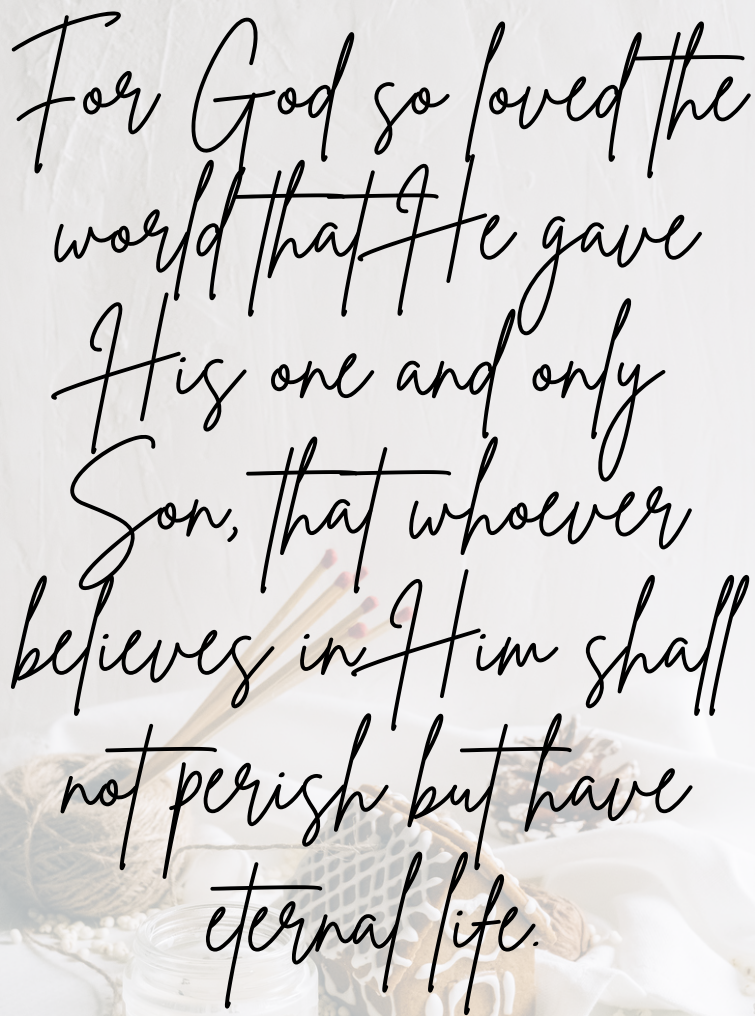 For God so loved the
world that He gave
His one and only
Son, that whoever
believes in Him shall
not perish but have
eternal life.